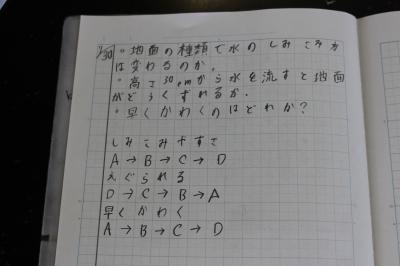 1/30 ・地面の種類で水のしみこみ方
は変わるのか。
・高さ30cmから水を流すと地面
がどうくずれるか.
・早くかわくのはどれか?
しみこみやすさ
A→B→C→D
えぐられる
D→C→B→A
早くかわく
A→B→C→D